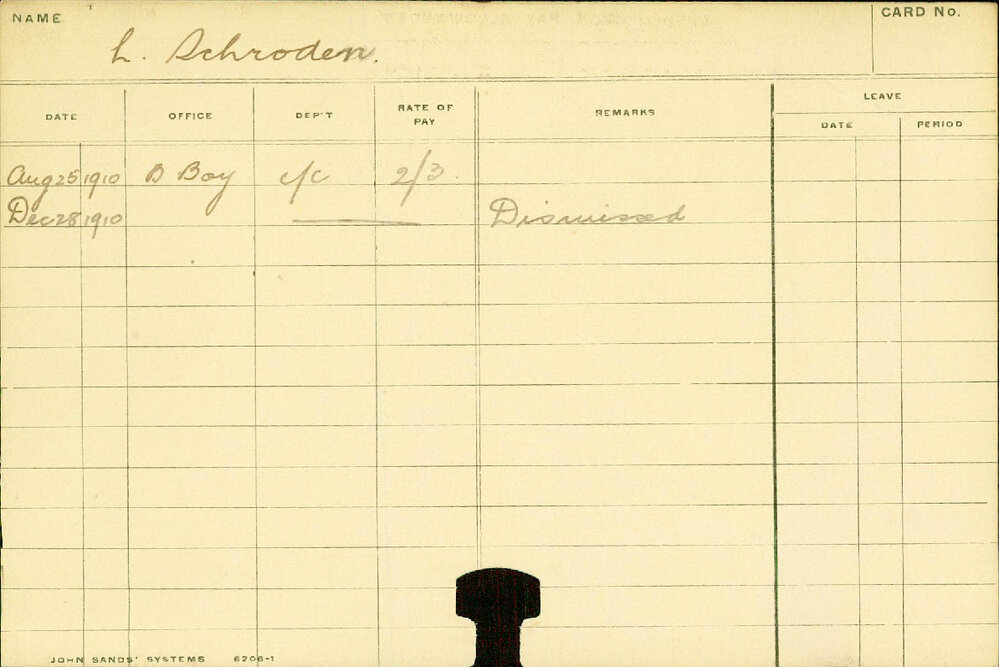 NAME
CARD No.
L. Schroden.
DATE OFFICE DEP'T RATE OF PAY REMARKS LEAVE
DATE PERIOD
Aug 25 1910 B Boy c/c 2/3
Dec 28 1910 Dismissed
JOHN SANDS' SYSTEMS 6206-1